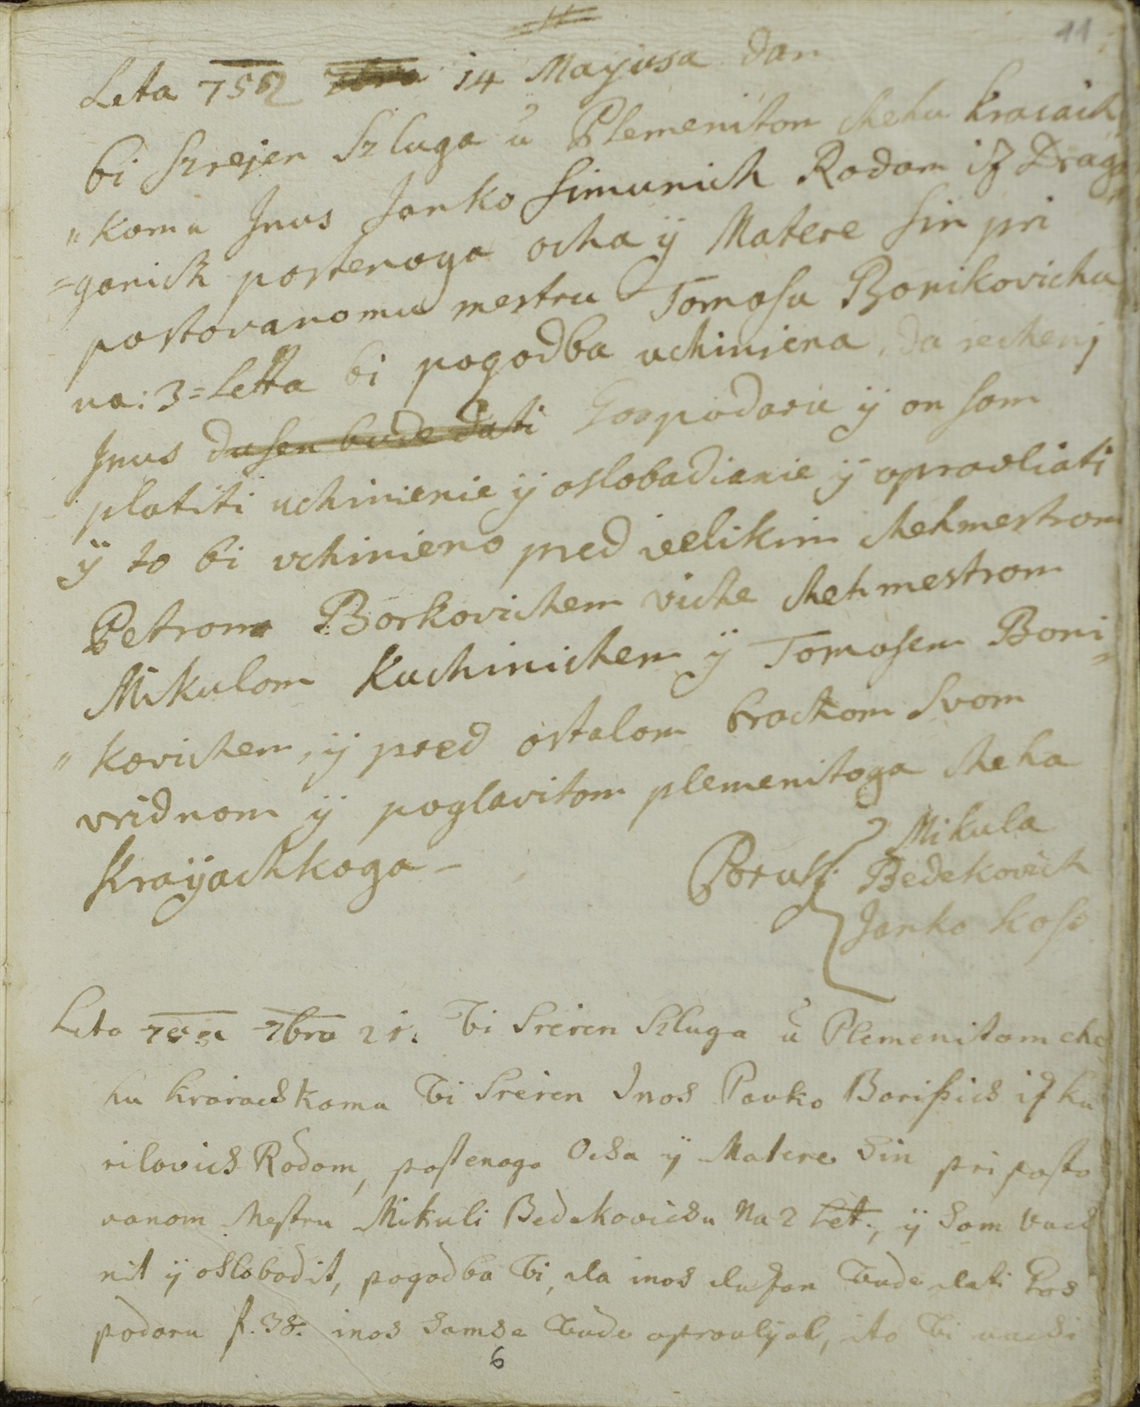 11
11
Leta 752 7bra 14 Mayusa dan
bi szrejen Szluga ŭ Plemeniton chehu kraiach
"komu Inus Janko Simunich Rodom iz Drag
=ganich postenoga ocha ÿ Matere sin pri
postovanomu mestru Tomasu Bonikovichu
na: 3=Letta bi pogodba uchiniena, da recheni
Inus dusen bude dati Gospodaru ÿ on som
platiti uchinienie ÿ oslobadianie ÿ opravliati
ÿ to bi vchinieno pred velikim chehmestrom
Petrom Borkovichem viche chehmestrom
Mikulom Kuchinichem ÿ Tomasem Boni=
"kovichem, ÿ pred ostalom brachom svom
vridnom ÿ poglavitom plemenitoga cheha
Krayachkoga –
Poruk: Mikula
Bedekovich
Janko Kos
Leto 752 7bra 21. Bi Sreien Szluga ŭ Plemenitom che
hu kraiachkomu Bi Sreien Inos Pavko Barißich iz ka
rilovich Rodom, postenoga Ocha ÿ Matere Sin pri posto
vanom Mestru Mikuli Bedekovichu Na 2 Let:, ÿ Som Vuch
nit ÿ oslobodit, pogodba Bi, da inos dusan Bude dati Gos
podaru f. 38. inos Samse Bude opravlyal, ito Bi uchi
6